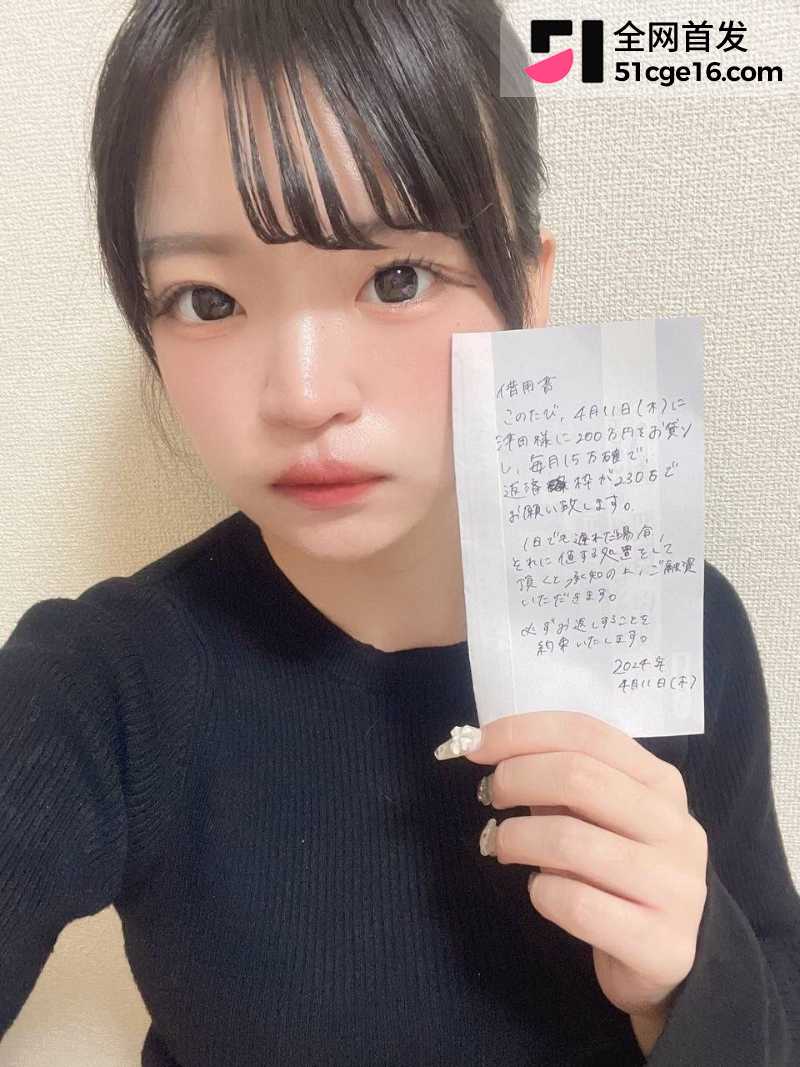 全网首发
51cge16.com
借用書
このたび、4月11日(木)に
様に200万円をお貸り
し、毎月15万確で、
返済 枠が230万で
お願い致します。
1日でも遅れた場合、
それに値する処置をして
頂くと承知の上、ご融資
いただきます。
必ずお返しすることを
約束いたします。
2024年
4月11日(木)